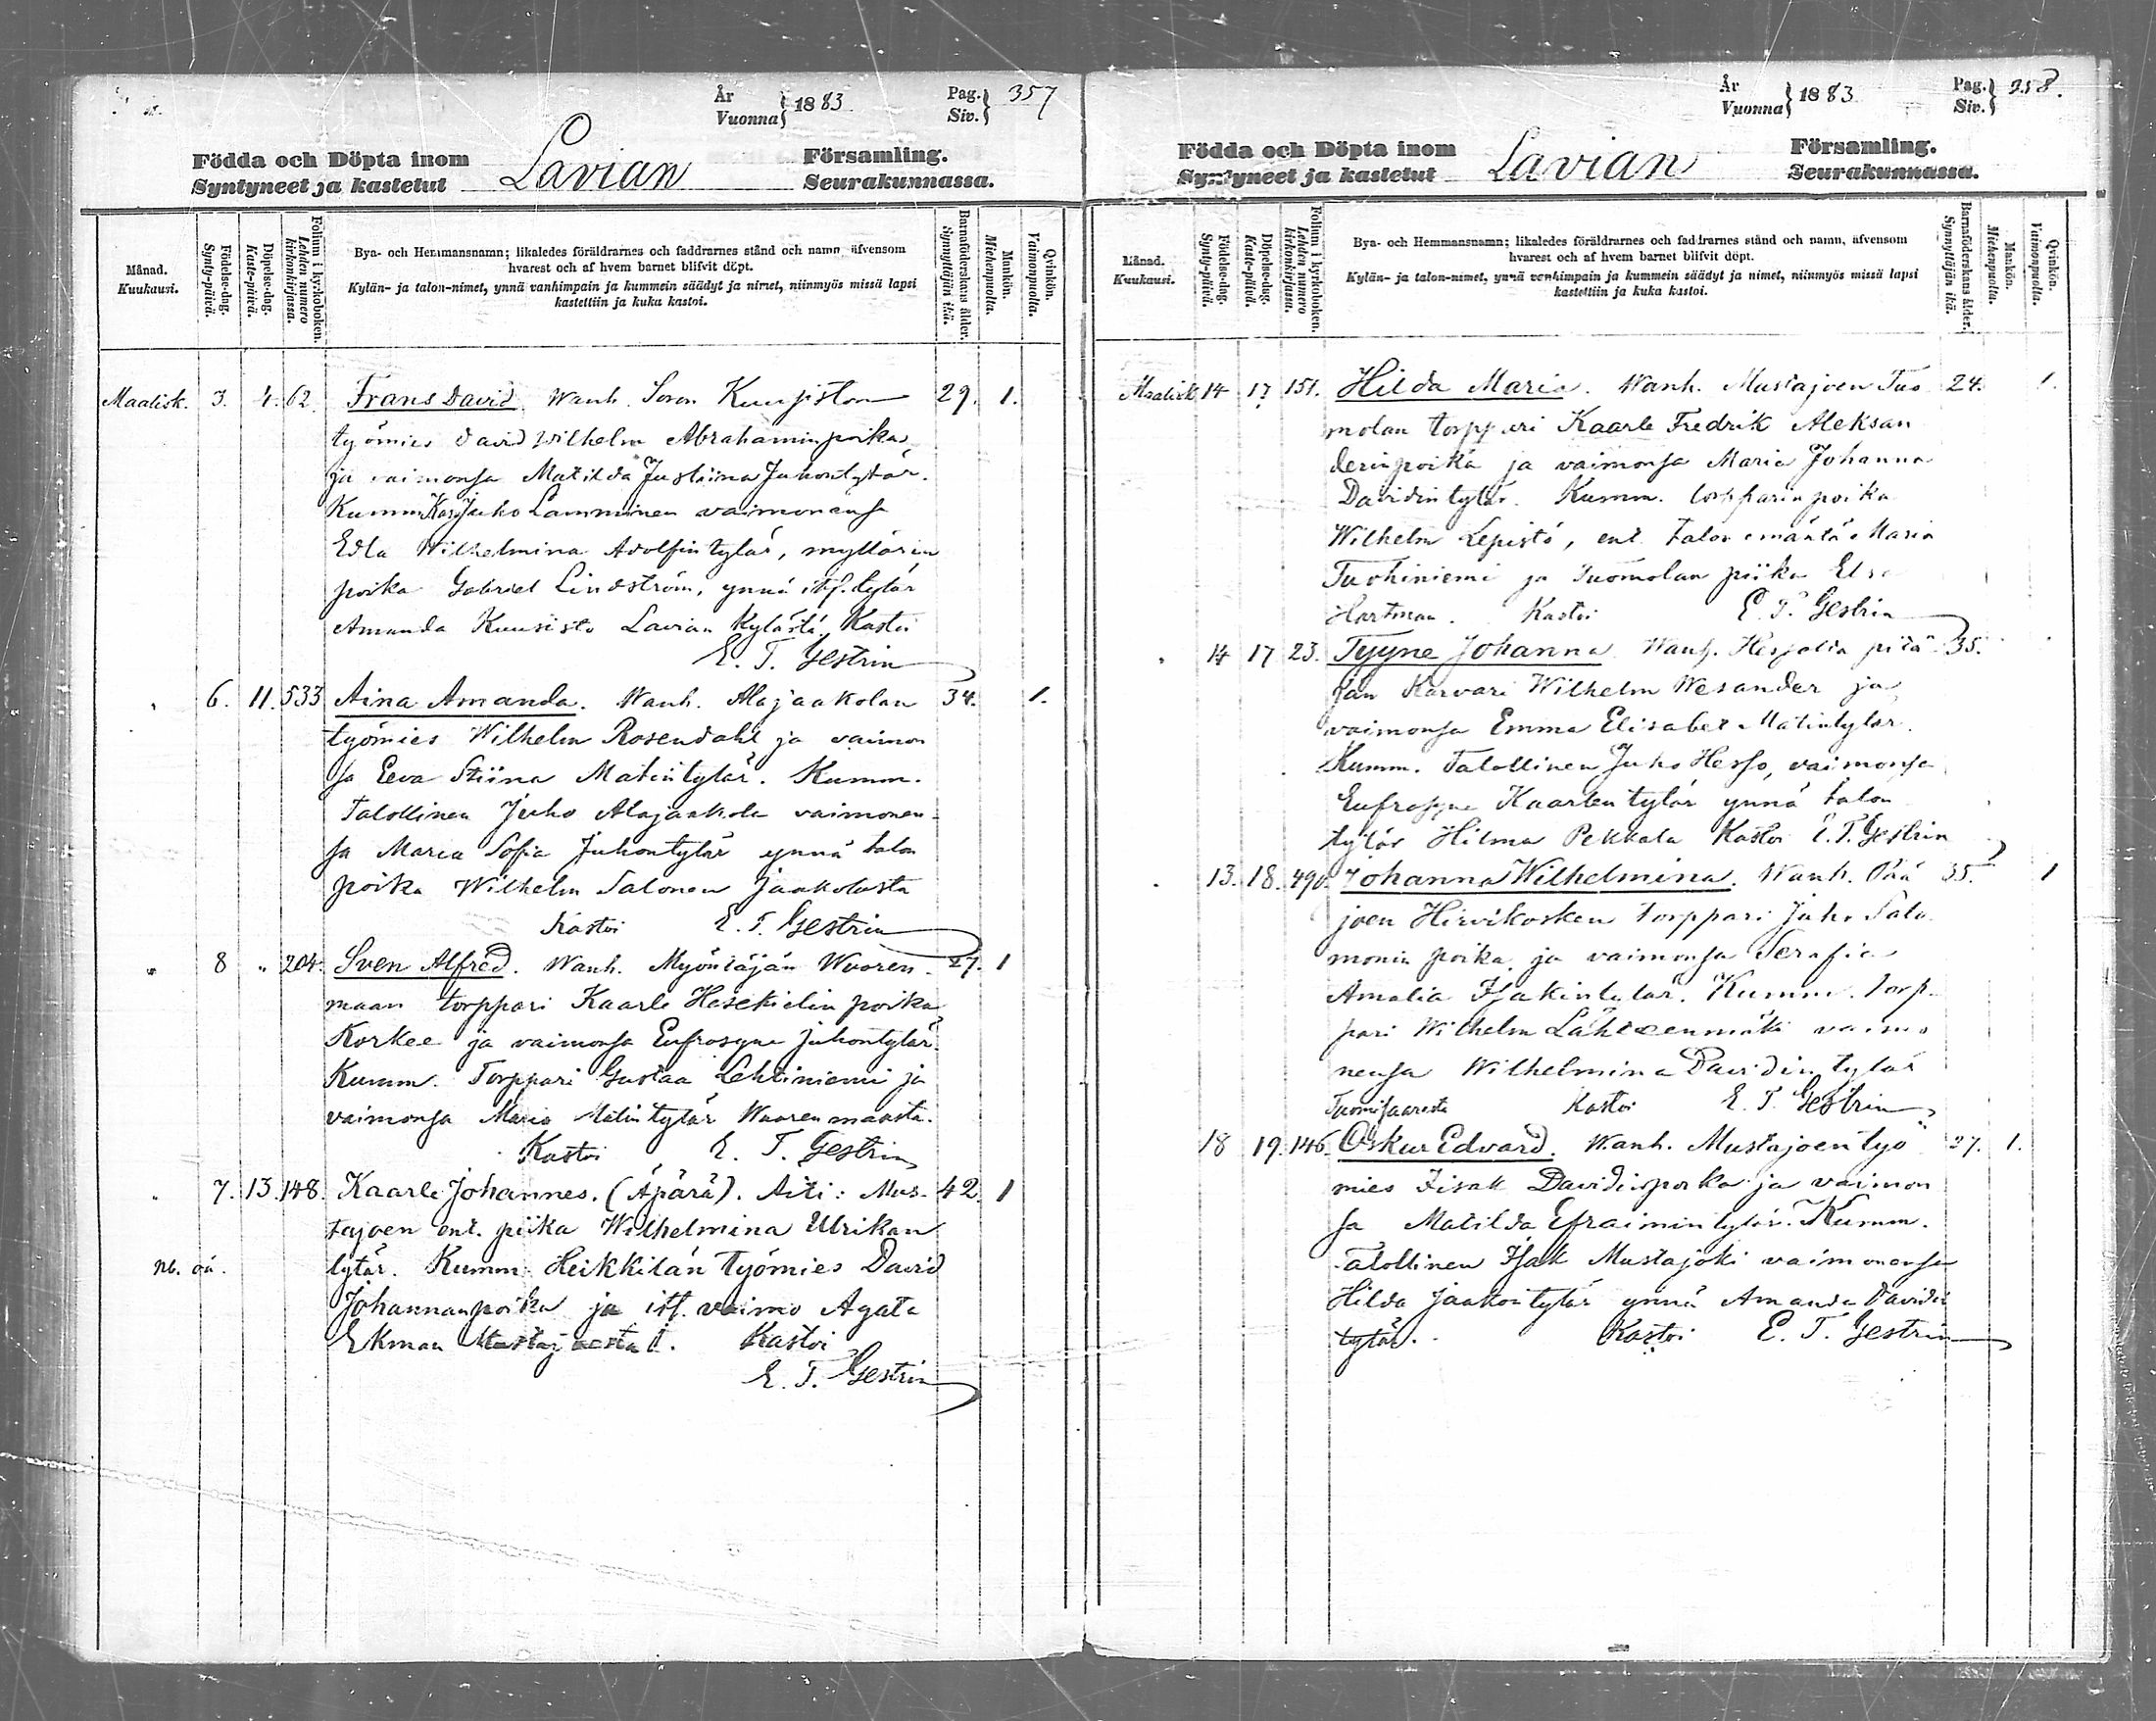 År
Vuonna } 1883
Pag.
Siv. } 357
Födda och Döpta inom Lavian Församling.
Syntyneet ja kastetut Seurakunnassa.
Månad.
Kuukausi.
Födelse-dag.
Synty-päivä.
Döpelse-dag.
Kaste-päivä.
Folium i kyrkoboken.
Lehden numero kirkonkirjassa.
Bya- och Hemmansnamn; likaledes föräldrarnes och faddrarnes stånd och namn, äfvensom
hvarest och af hvem barnet blifvit döpt.
Kylän- ja talon-nimet, ynnä vanhimpain ja kummein säädyt ja nimet, niinmyös missä lapsi
kastettiin ja kuka kastoi.
Barnaföderskans ålder.
Synnyttäjän ikä.
Mankön.
Miehenpuolta.
Qvinkön.
Vaimonpuolta.
Maalisk. 3. 4. 62. Frans David. Wanh. Kuusiston 29. 1.
työmies David Wilhelm Abrahaminpoika
ja vaimonsa Matilda Justiina Juhontytär.
Kumm. Juho Lamminen vaimonensa
Edla Wilhelmina Adolfintytär, myllärin
poika Gabriel Lindström, ynnä its. tytär
Amanda Kuusisto Lavian kylästä. Kastoi
E. T. Gestrin
6. 11. 533 Aina Amanda. Wanh. Alajaakolan 34. 1.
työmies Wilhelm Rosendahl ja vaimon
sa Eeva Stiina Matintytär. Kumm.
Talollinen Juho Alajaakola vaimonen-
sa Maria Sofia Juhontytär ynnä talon
poika Wilhelm Salonen Jaakolasta
Kastoi E. T. Gestrin
" 8 " 204. Sven Alfred. Wanh. Myöntäjän Wuoren- 27. 1
maan torppari Kaarle Hesekielin poika
Korkee ja vaimonsa Eufrosyne Juhontytär.
Kumm. Torppari Gustaa Lehtiniemi ja
vaimonsa Maria Matintytär Wuorenmaasta.
Kastoi E. T. Gestrin
" 7. 13. 148. Kaarle Johannes. (Äpärä). Äiti: Mus- 42. 1
tajoen ent. piika Wilhelmina Ulrikan
Nb. oä. tytär. Kumm. Heikkilän työmies David
Johannanpoika ja itl. vaimo Agata
Ekman Mustajoesta. Kastoi
E. T. Gestrin
År
Vuonna } 1883
Pag.
Siv. } 358.
Födda och Döpta inom Lavian Församling.
Syntyneet ja kastetut Seurakunnassa.
Månad.
Kuukausi.
Födelse-dag.
Synty-päivä.
Döpelse-dag.
Kaste-päivä.
Folium i kyrkoboken.
Lehden numero kirkonkirjassa.
Bya- och Hemmansnamn; likaledes föräldrarnes och faddrarnes stånd och namn, äfvensom
hvarest och af hvem barnet blifvit döpt.
Kylän- ja talon-nimet, ynnä vanhimpain ja kummein säädyt ja nimet, niinmyös missä lapsi
kastettiin ja kuka kastoi.
Barnaföderskans ålder.
Synnyttäjän ikä.
Mankön.
Miehenpuolta.
Qvinkön.
Vaimonpuolta.
Maalisk. 14 17 151. Hilda Maria. Wanh. Mustajoen Tuo 24. 1.
molan torppari Kaarle Fredrik Aleksan
derinpoika ja vaimonsa Maria Johanna
Davidintytär. Kumm. torpparin poika
Wilhelm Lepistö, ent. talon emäntä Maria
Tuohiniemi ja Tuomolan piika Elsa
Hartman. Kastoi E. T. Gestrin
" 14 17 23. Tyyne Johanna. Wanh. pitä- 35.
jän Karvari Wilhelm Wesander ja
vaimonsa Emma Elisabet Matintytär.
Kumm. Talollinen Juho Hesso, vaimonsa
Eufrosyne Kaarlentytär ynnä talon
tytär Hilma Pekkala Kastoi E. T. Gestrin
13. 18. 490. Johanna Wilhelmina. Wanh. Pää 35. 1
joen Hirvikosken torppari Juho Salo
monin poika ja vaimonsa Serafia
Amalia Isakintytär. Kumm. Torp-
pari Wilhelm Lähteenmäki vaimo
nensa Wilhelmina Davidintytär
Tuomisaaresta Kastoi E. T. Gestrin
18 19. 146. Oskar Edvard. Wanh. Mustajoen työ 27. 1.
mies Iisak Davidinpoika ja vaimon
sa Matilda Efraimintytär. Kumm.
Talollinen Isak Mustajoki vaimonensa
Hilda Jaakontytär ynnä Amanda Davidin
tytär. Kastoi E. T. Gestrin